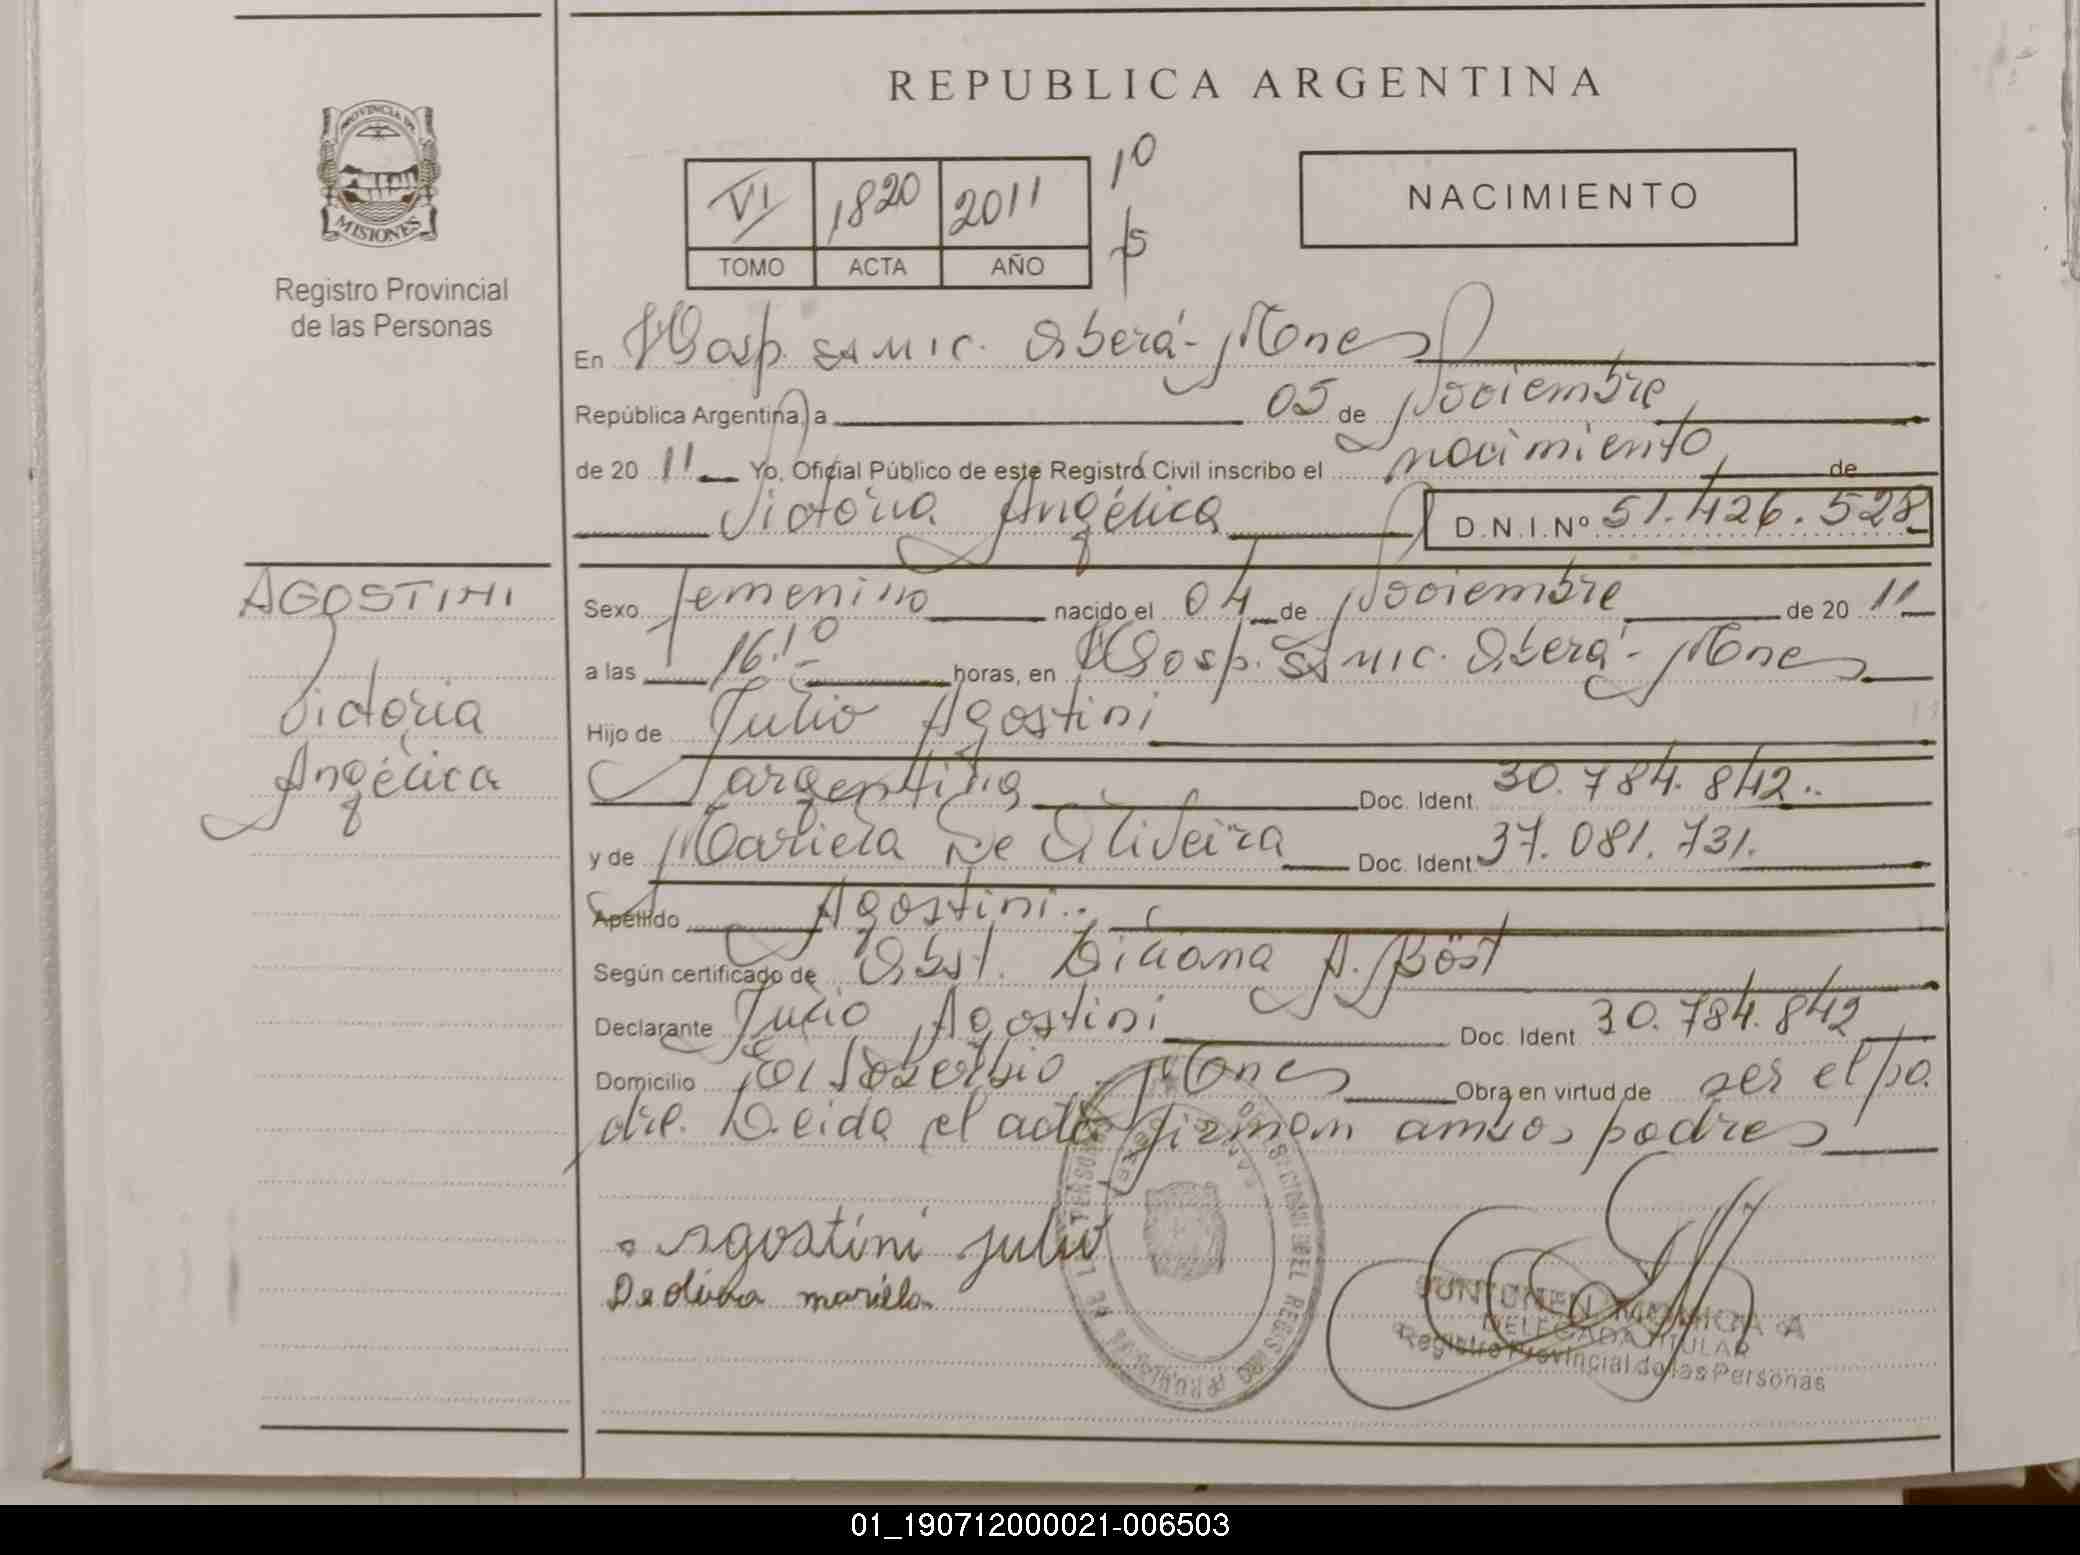 REPUBLICA ARGENTINA
PROVINCIA DE
MISIONES
Registro Provincial
de las Personas
VI 1820 2011
TOMO ACTA AÑO
10
NACIMIENTO
En Hosp. SAMIC. Oberá - Mones
República Argentina, a 05 de Noviembre
de 20 11 Yo, Oficial Público de este Registro Civil inscribo el nacimiento de
Victoria Angélica D.N.I.Nº 51.426.528
AGOSTINI
Victoria
Angélica
Sexo femenino nacido el 04 de Noviembre de 20 11
a las 16.10 horas, en Hosp. SAMIC. Oberá - Mones
Hijo de Julio Agostini
argentina Doc. Ident. 30.784.842..
y de Mariela De Oliveira Doc. Ident. 37.081.731.
Apellido Agostini..
Según certificado de Obst. Liliana A. Böst
Declarante Julio Agostini Doc. Ident 30.784.842
Domicilio El Soberbio - Mones Obra en virtud de ser el pa.
dre. Leida el acta firman ambos padres
Agostini Julio
De oliveira mariela
JUNTUNEN MONICA A
DELEGADA TITULAR
Registro Provincial de las Personas
01_190712000021-006503